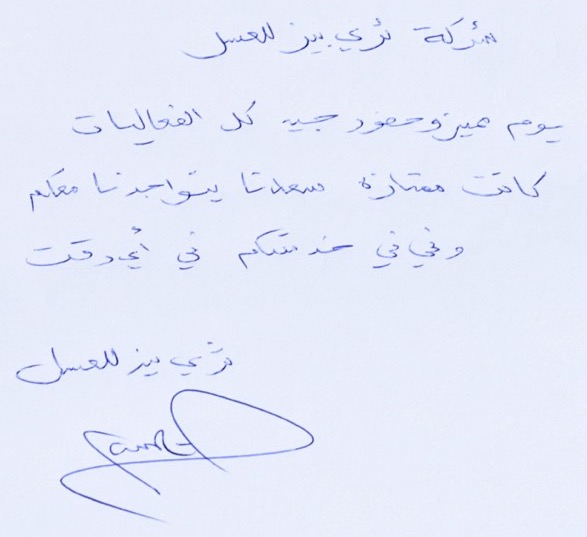 شركة ثري بيز للعسل
يوم مميز وحضور جيد كل الفعاليات
كانت ممتازة سعدنا بتواجدنا معكم
وفي في خدمتكم في أي وقت
ثري بيز للعسل